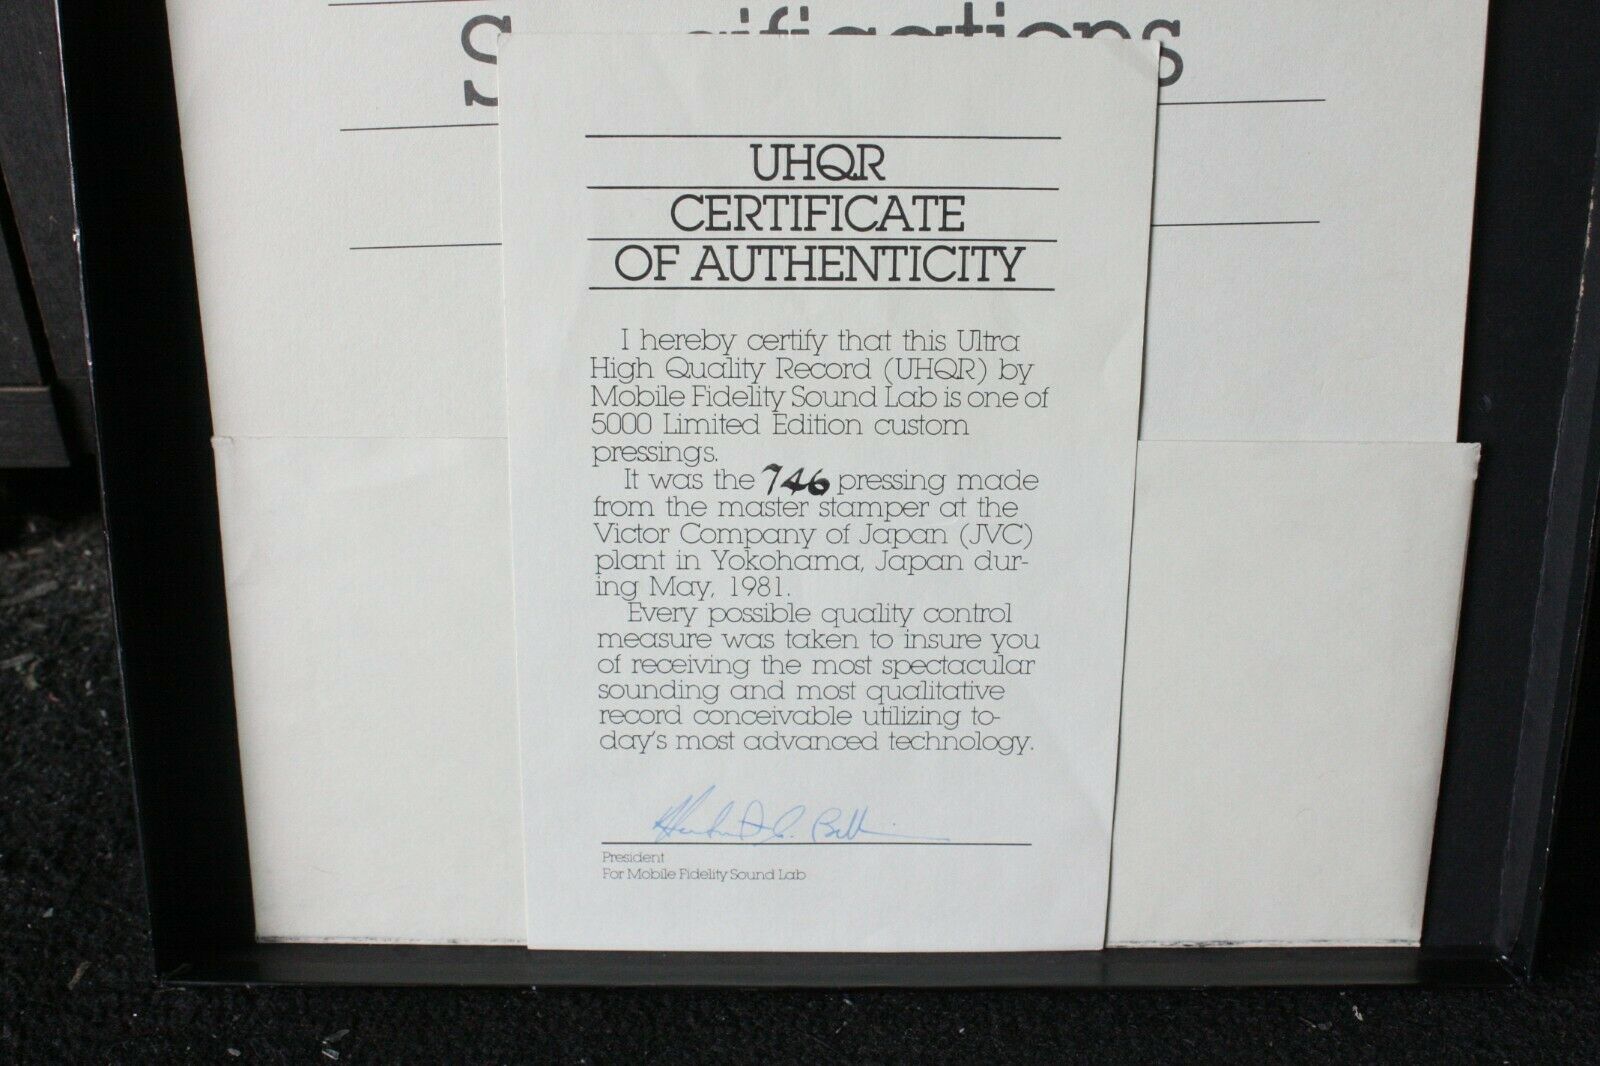 UHQR
CERTIFICATE
OF AUTHENTICITY
I hereby certify that this Ultra
High Quality Record (UHQR) by
Mobile Fidelity Sound Lab is one of
5000 Limited Edition custom
pressings.
It was the 746 pressing made
from the master stamper at the
Victor Company of Japan (JVC)
plant in Yokohama, Japan dur-
ing May, 1981.
Every possible quality control
measure was taken to insure you
of receiving the most spectacular
sounding and most qualitative
record conceivable utilizing to-
day's most advanced technology.
President
For Mobile Fidelity Sound Lab